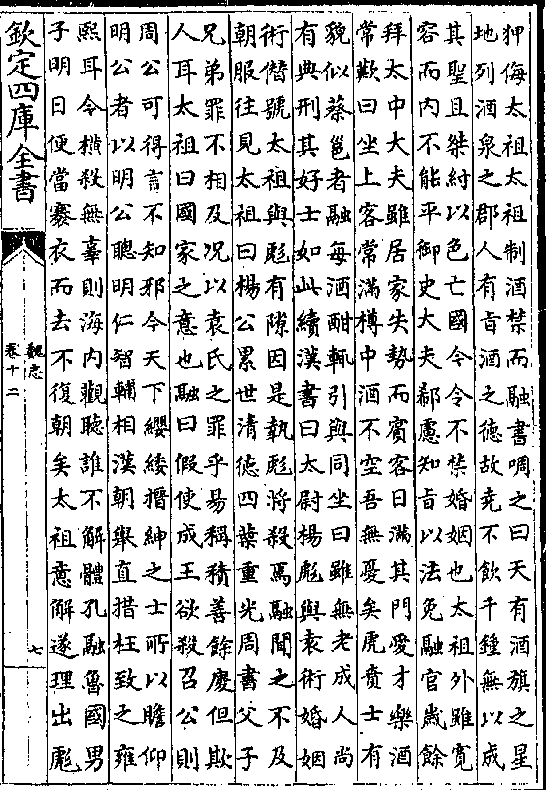 狎侮太祖太祖制酒禁而融書啁之曰天有酒旗之星
地列酒泉之郡人有旨酒之德故堯不飲千鍾無以成
其聖且桀紂以色亡國今令不禁婚姻也太祖外雖寬
容而内不能平御史大夫郗慮知旨以法免融官歲餘
拜太中大夫雖居家失勢而賓客日滿其門愛才樂酒
常歎曰坐上客常滿樽中酒不空吾無憂矣虎賁士有
貌似蔡邕者融每酒酣輒引與同坐曰雖無老成人尚
有典刑其好士如此續漢書曰太尉楊彪與袁術婚姻
術僭號太祖與彪有隙因是執彪將殺焉融聞之不及
朝服往見太祖曰楊公累世清德四葉重光周書父子
兄弟罪不相及況以袁氏之罪乎易稱積善餘慶但欺
人耳太祖曰國家之意也融曰假使成王欲殺召公則
周公可得言不知邪今天下纓緌搢紳之士所以瞻仰
明公者以明公聰明仁智輔相漢朝舉直措枉致之雍
熙耳今橫殺無辜則海内觀聽誰不解體孔融魯國男
子明日便當褰衣而去不復朝矣太祖意解遂理出彪
欽定四庫全書
魏志
卷十二
七